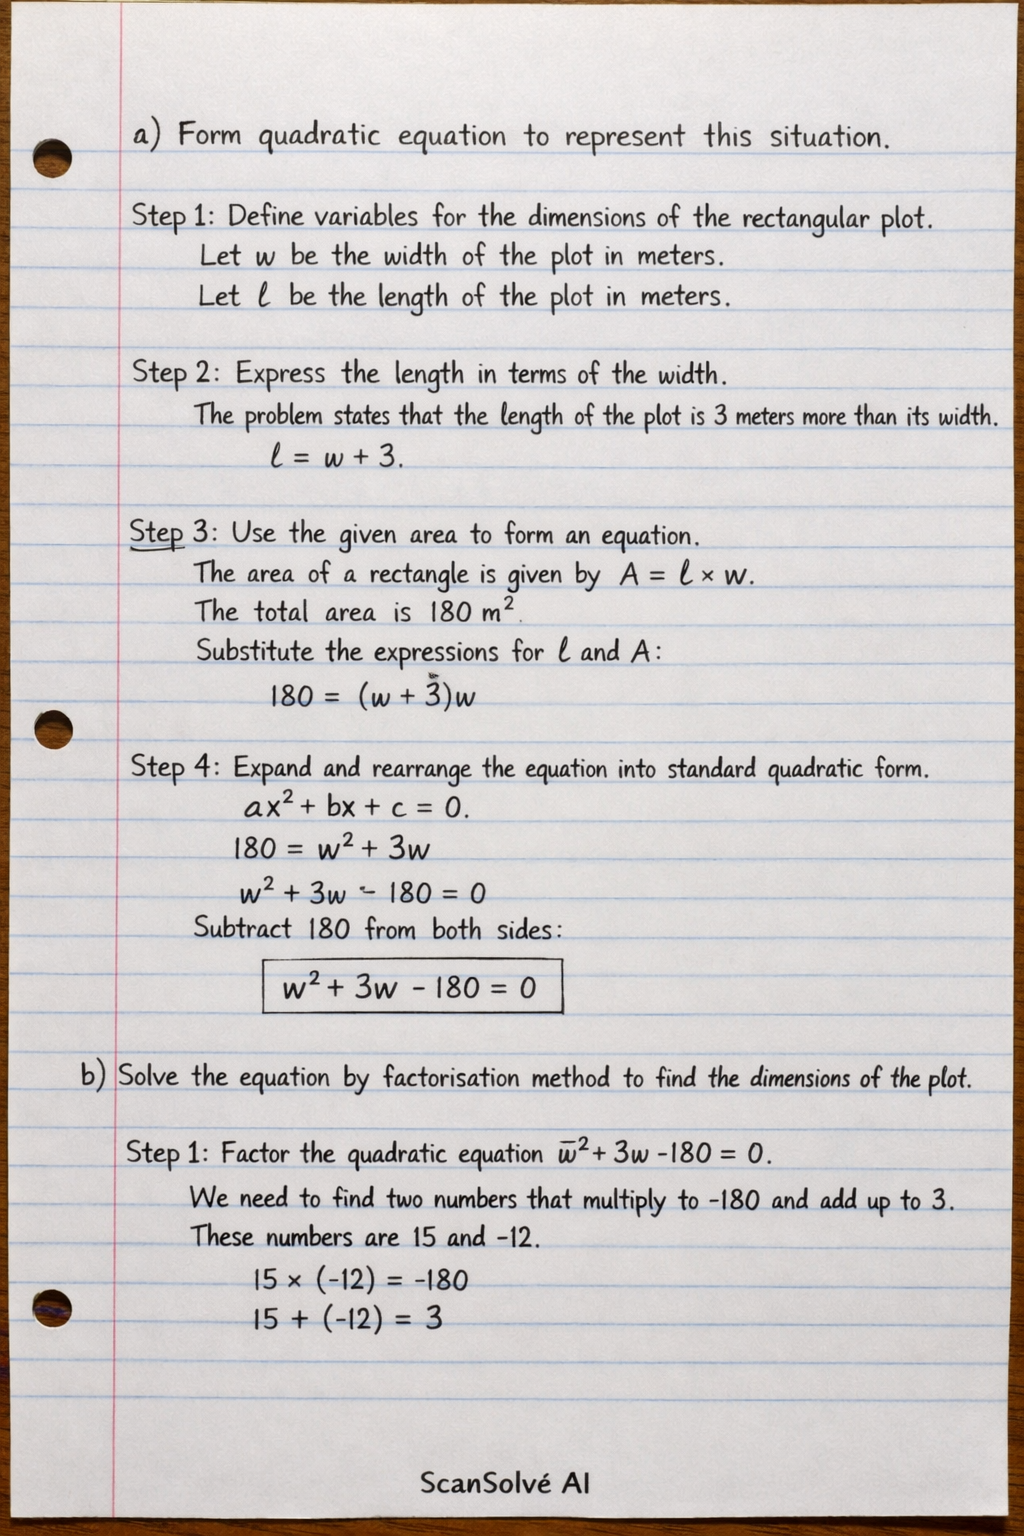 a) Form quadratic equation to represent this situation.
Step 1: Define variables for the dimensions of the rectangular plot.
Let w be the width of the plot in meters.
Let ℓ be the length of the plot in meters.
Step 2: Express the length in terms of the width.
The problem states that the length of the plot is 3 meters more than its width.
ℓ = w + 3.
Step 3: Use the given area to form an equation.
The area of a rectangle is given by A = ℓ × w.
The total area is 180 m².
Substitute the expressions for ℓ and A:
180 = (w + 3)w
Step 4: Expand and rearrange the equation into standard quadratic form.
ax² + bx + c = 0.
180 = w² + 3w
w² + 3w - 180 = 0
Subtract 180 from both sides:
w² + 3w - 180 = 0
b) Solve the equation by factorisation method to find the dimensions of the plot.
Step 1: Factor the quadratic equation w̄² + 3w - 180 = 0.
We need to find two numbers that multiply to -180 and add up to 3.
These numbers are 15 and -12.
15 × (-12) = -180
15 + (-12) = 3
ScanSolvé AI